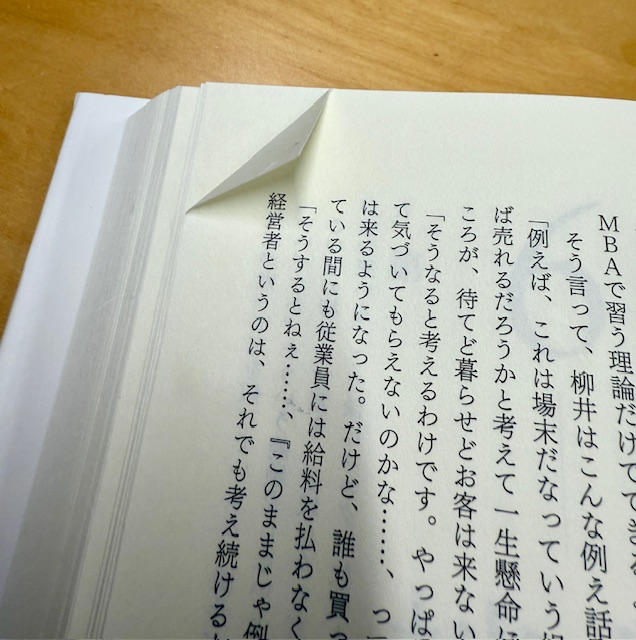 MBAで習う理論だけでできる
そう言って、柳井はこんな例え話
「例えば、これは場末だなっていう
ば売れるだろうかと考えて一生懸命
ころが、待てど暮らせどお客は来ない
「そうなると考えるわけです。やっぱ
て気づいてもらえないのかな……、っ
は来るようになった。だけど、誰も買っ
ている間にも従業員には給料を払わなく
「そうするとねぇ……、『このままじゃ倒
経営者というのは、それでも考え続ける